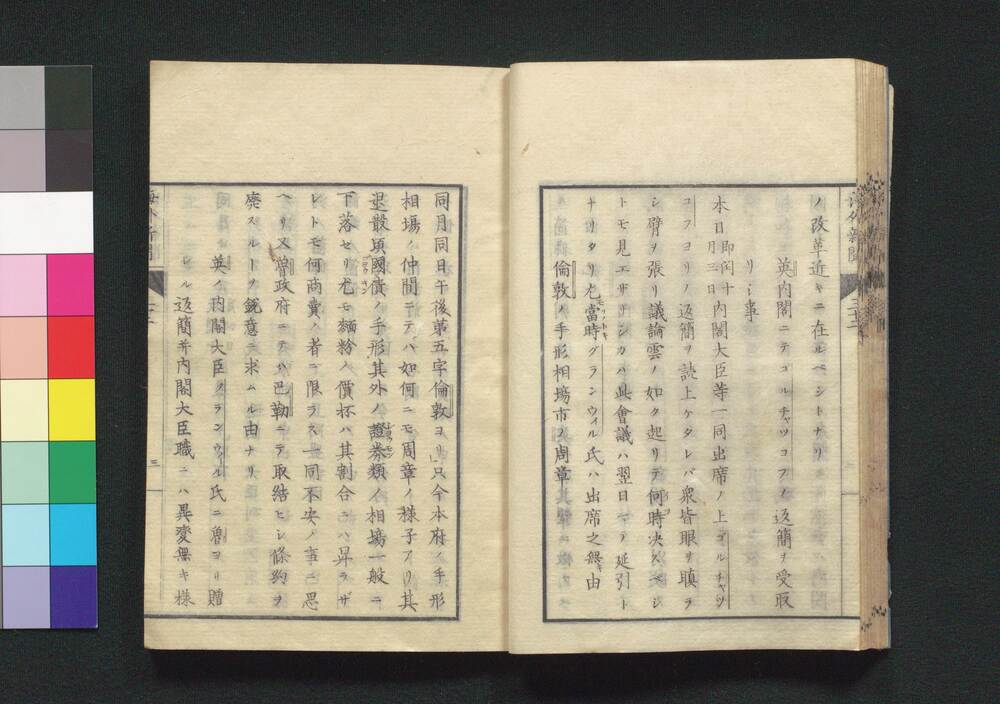 ノ改革近キニ在ルベシトナリ
英内閣ニテゴルチャツコフノ返簡ヲ受取
リシ事
本日即閏十月三日内閣大臣等一同出席ノ上ゴルチャツ
コフヨリノ返簡ヲ読上ケタレバ衆皆眼ヲ瞋ラ
シ臂ヲ張リ議論雲ノ如ク起リテ何時決スベシ
トモ見エザリシカハ此會議ハ翌日マテ延引ト
ナリタリ尤當時グランウィル氏ハ出席之無由
倫敦ノ手形相場市ノ周章
同月同日午後第五字倫敦ヨリ只今本府ノ手形
相場ノ仲間ニテハ如何ニモ周章ノ様子アリ其
退散頃國債ノ手形其外ノ證券類ノ相場一般ニ
下落セリ尤モ麺粉ノ價杯ハ其割合ニハ昇ラザ
レトモ何商賣ノ者ニ限ラス一同不安ノ事ニ思
ヘリ又曽政府ニテハ巴勒ニテ取結ヒシ條約ヲ
廃スルトノ鋭意ニ求ムル由ナリ
英ノ内閣大臣グランウィル氏ニ魯ヨリ贈
レル返簡并内閣大臣職ニハ異変無キ様
海外新聞
三